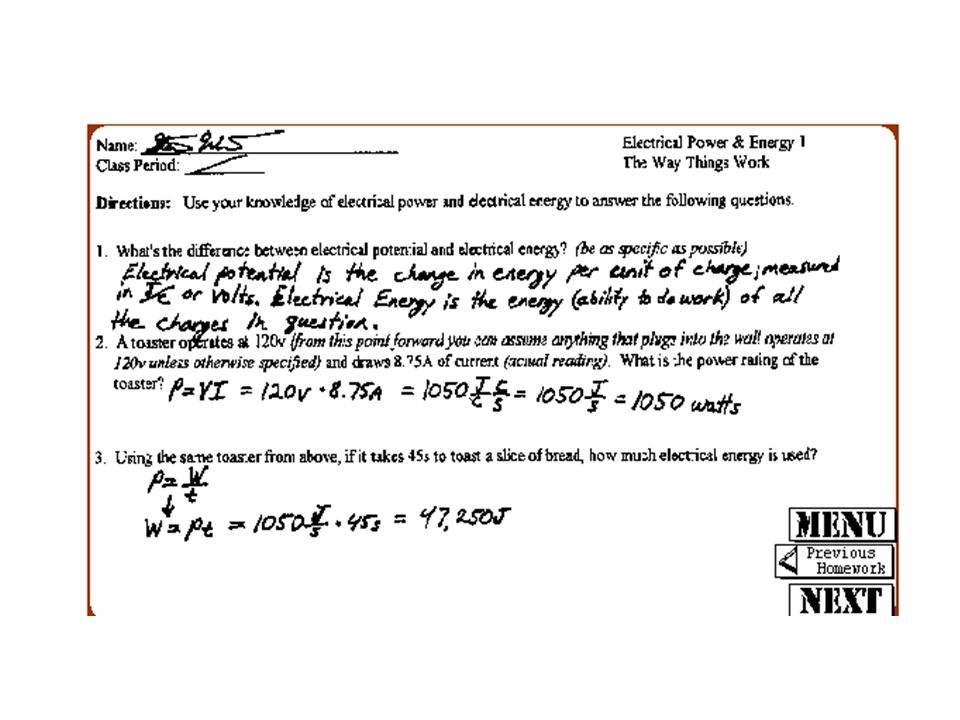 Name:
Electrical Power & Energy 1
Class Period:
The Way Things Work
Directions: Use your knowledge of electrical power and electrical energy to answer the following questions.
1. What's the difference between electrical potential and electrical energy? (be as specific as possible)
Electrical potential is the change in energy per unit of charge; measured
in J/C or Volts. Electrical Energy is the energy (ability to do work) of all
the charges in question.
2. A toaster operates at 120v (from this point forward you can assume anything that plugs into the wall operates at
120v unless otherwise specified) and draws 8.75A of current (actual reading). What is the power rating of the
toaster? P=VI = 120v · 8.75A = 1050 J/C C/s = 1050 J/s = 1050 watts
3. Using the same toaster from above, if it takes 45s to toast a slice of bread, how much electrical energy is used?
P= W/t
↓
W = Pt = 1050 J/s · 45s = 47,250J
MENU
Previous
Homework
NEXT